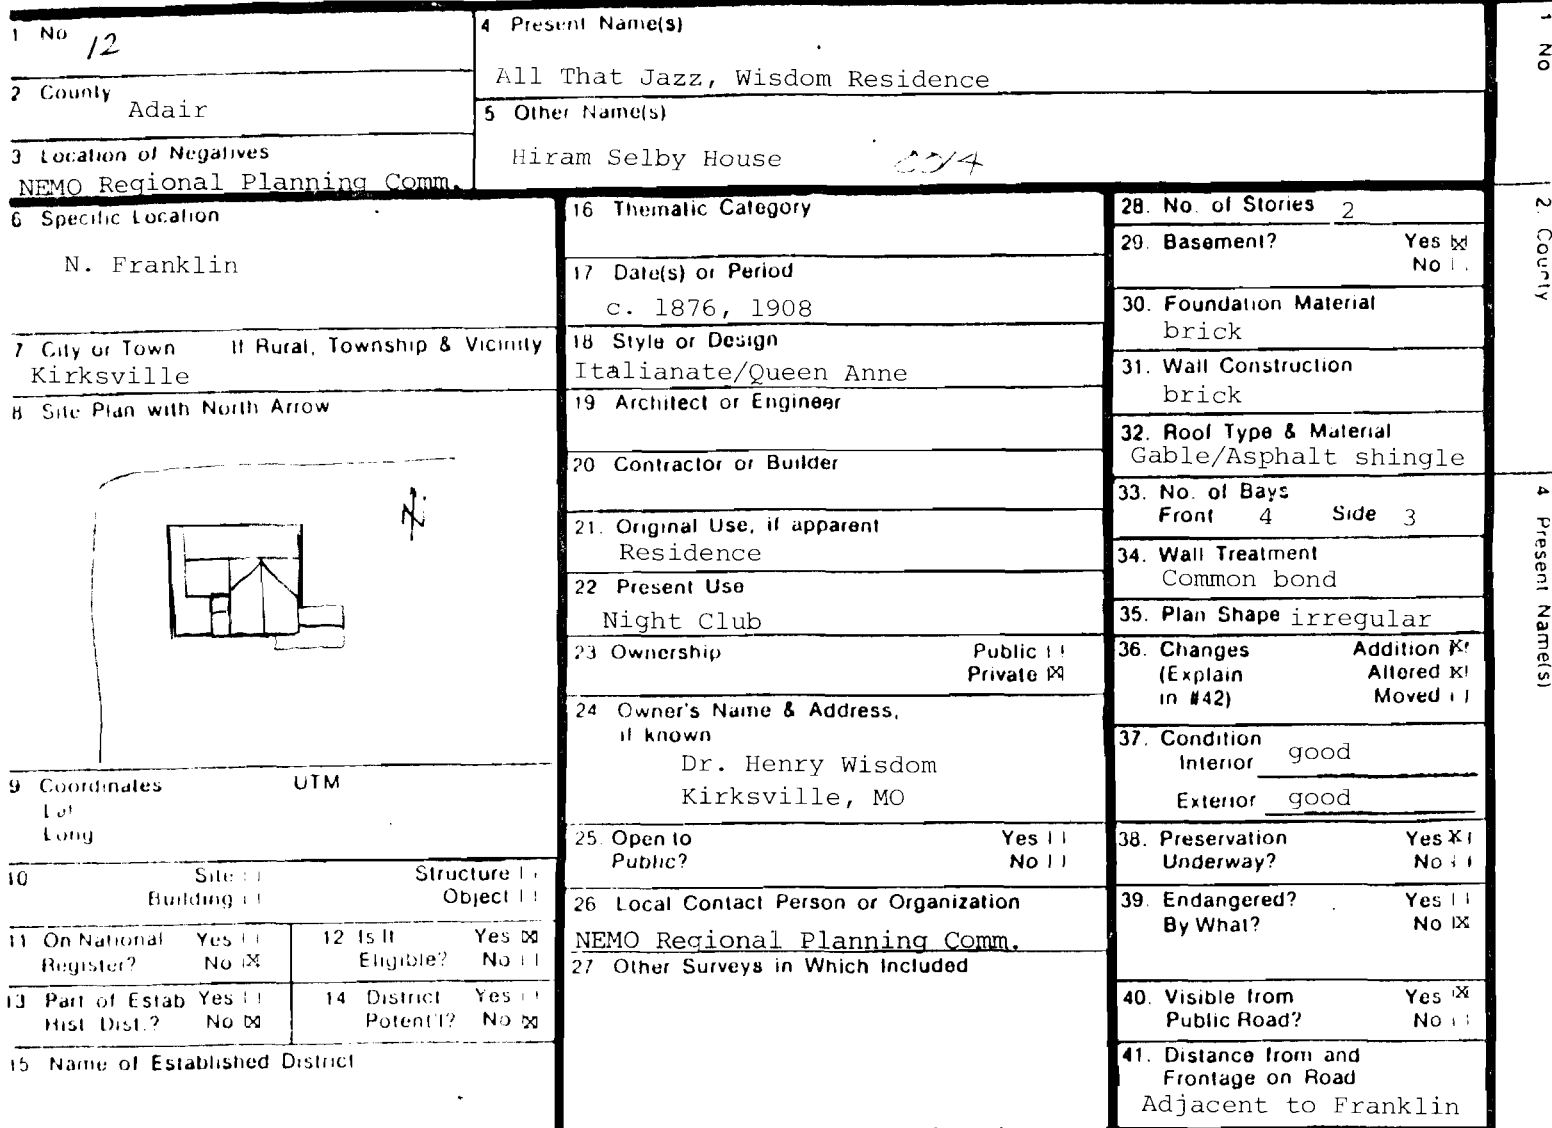 1 No 12
2 County
Adair
3 Location of Negatives
NEMO Regional Planning Comm.
4 Present Name(s)
All That Jazz, Wisdom Residence
5 Other Name(s)
Hiram Selby House
6 Specific Location
N. Franklin
7 City or Town If Rural, Township & Vicinity
Kirksville
8 Site Plan with North Arrow
N.
9 Coordinates UTM
Lat
Long
10 Site Structure
Building Object
11 On National Yes
Register? No X
12 Is It Yes X
Eligible? No
13 Part of Estab Yes
Hist Dist.? No X
14 District Yes
Potent'l? No X
15 Name of Established District
16 Thematic Category
17 Date(s) or Period
c. 1876, 1908
18 Style or Design
Italianate/Queen Anne
19 Architect or Engineer
20 Contractor or Builder
21. Original Use, if apparent
Residence
22 Present Use
Night Club
23 Ownership Public
Private X
24 Owner's Name & Address,
if known
Dr. Henry Wisdom
Kirksville, MO
25. Open to Yes
Public? No
26 Local Contact Person or Organization
NEMO Regional Planning Comm.
27 Other Surveys in Which Included
28. No. of Stories 2
29. Basement? Yes X
No
30. Foundation Material
brick
31. Wall Construction
brick
32. Roof Type & Material
Gable/Asphalt shingle
33. No. of Bays
Front 4 Side 3
34. Wall Treatment
Common bond
35. Plan Shape irregular
36. Changes Addition X
(Explain Altered X
in #42) Moved
37. Condition
Interior good
Exterior good
38. Preservation Yes X
Underway? No
39. Endangered? Yes
By What? No X
40. Visible from Yes X
Public Road? No
41. Distance from and
Frontage on Road
Adjacent to Franklin
1 No
2. County
4 Present Name(s)